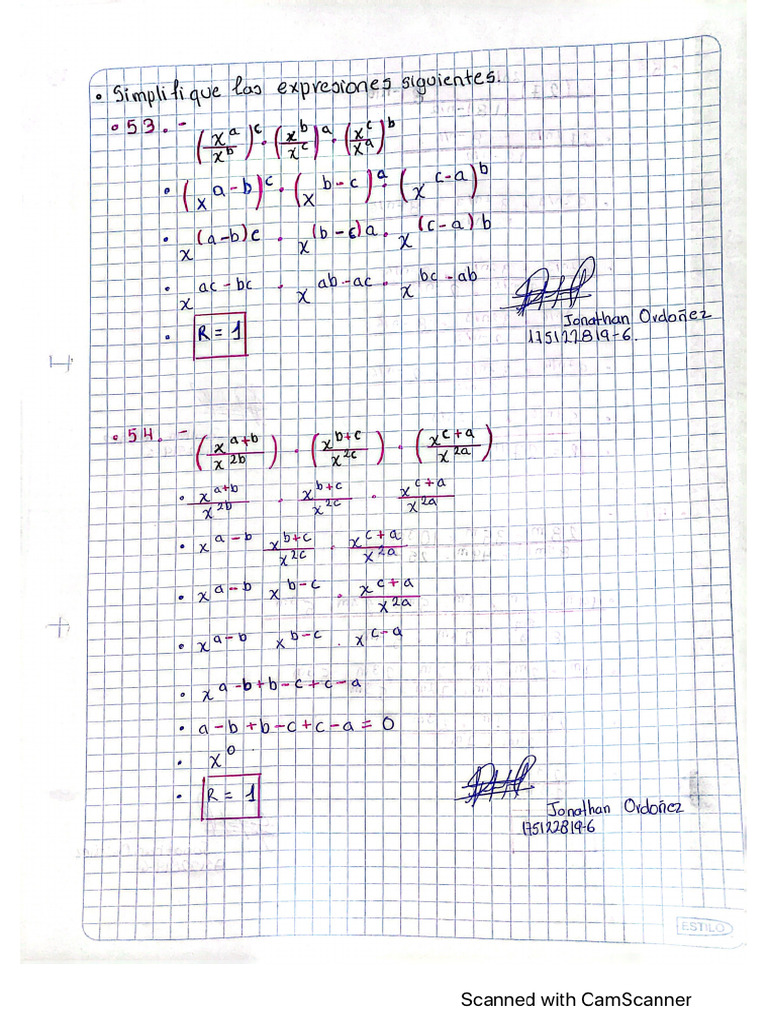 • Simplifique las expresiones siguientes.
• 53.- (x^a/x^b)^c · (x^b/x^c)^a · (x^c/x^a)^b
• (x^a-b)^c · (x^b-c)^a · (x^c-a)^b
• x^(a-b)c · x^(b-c)a · x^(c-a)b
• x^ac-bc · x^ab-ac · x^bc-ab
• R = 1
Jonathan Ordoñez
175122819-6.
• 54.- (x^a+b/x^2b) · (x^b+c/x^2c) · (x^c+a/x^2a)
• x^a+b/x^2b · x^b+c/x^2c · x^c+a/x^2a
• x^a-b x^b+c/x^2c · x^c+a/x^2a
• x^a-b x^b-c · x^c+a/x^2a
• x^a-b x^b-c · x^c-a
• x^a-b+b-c+c-a
• a-b+b-c+c-a = 0
• x^0
• R = 1
Jonathan Ordoñez
175122819-6
ESTILO
Scanned with CamScanner